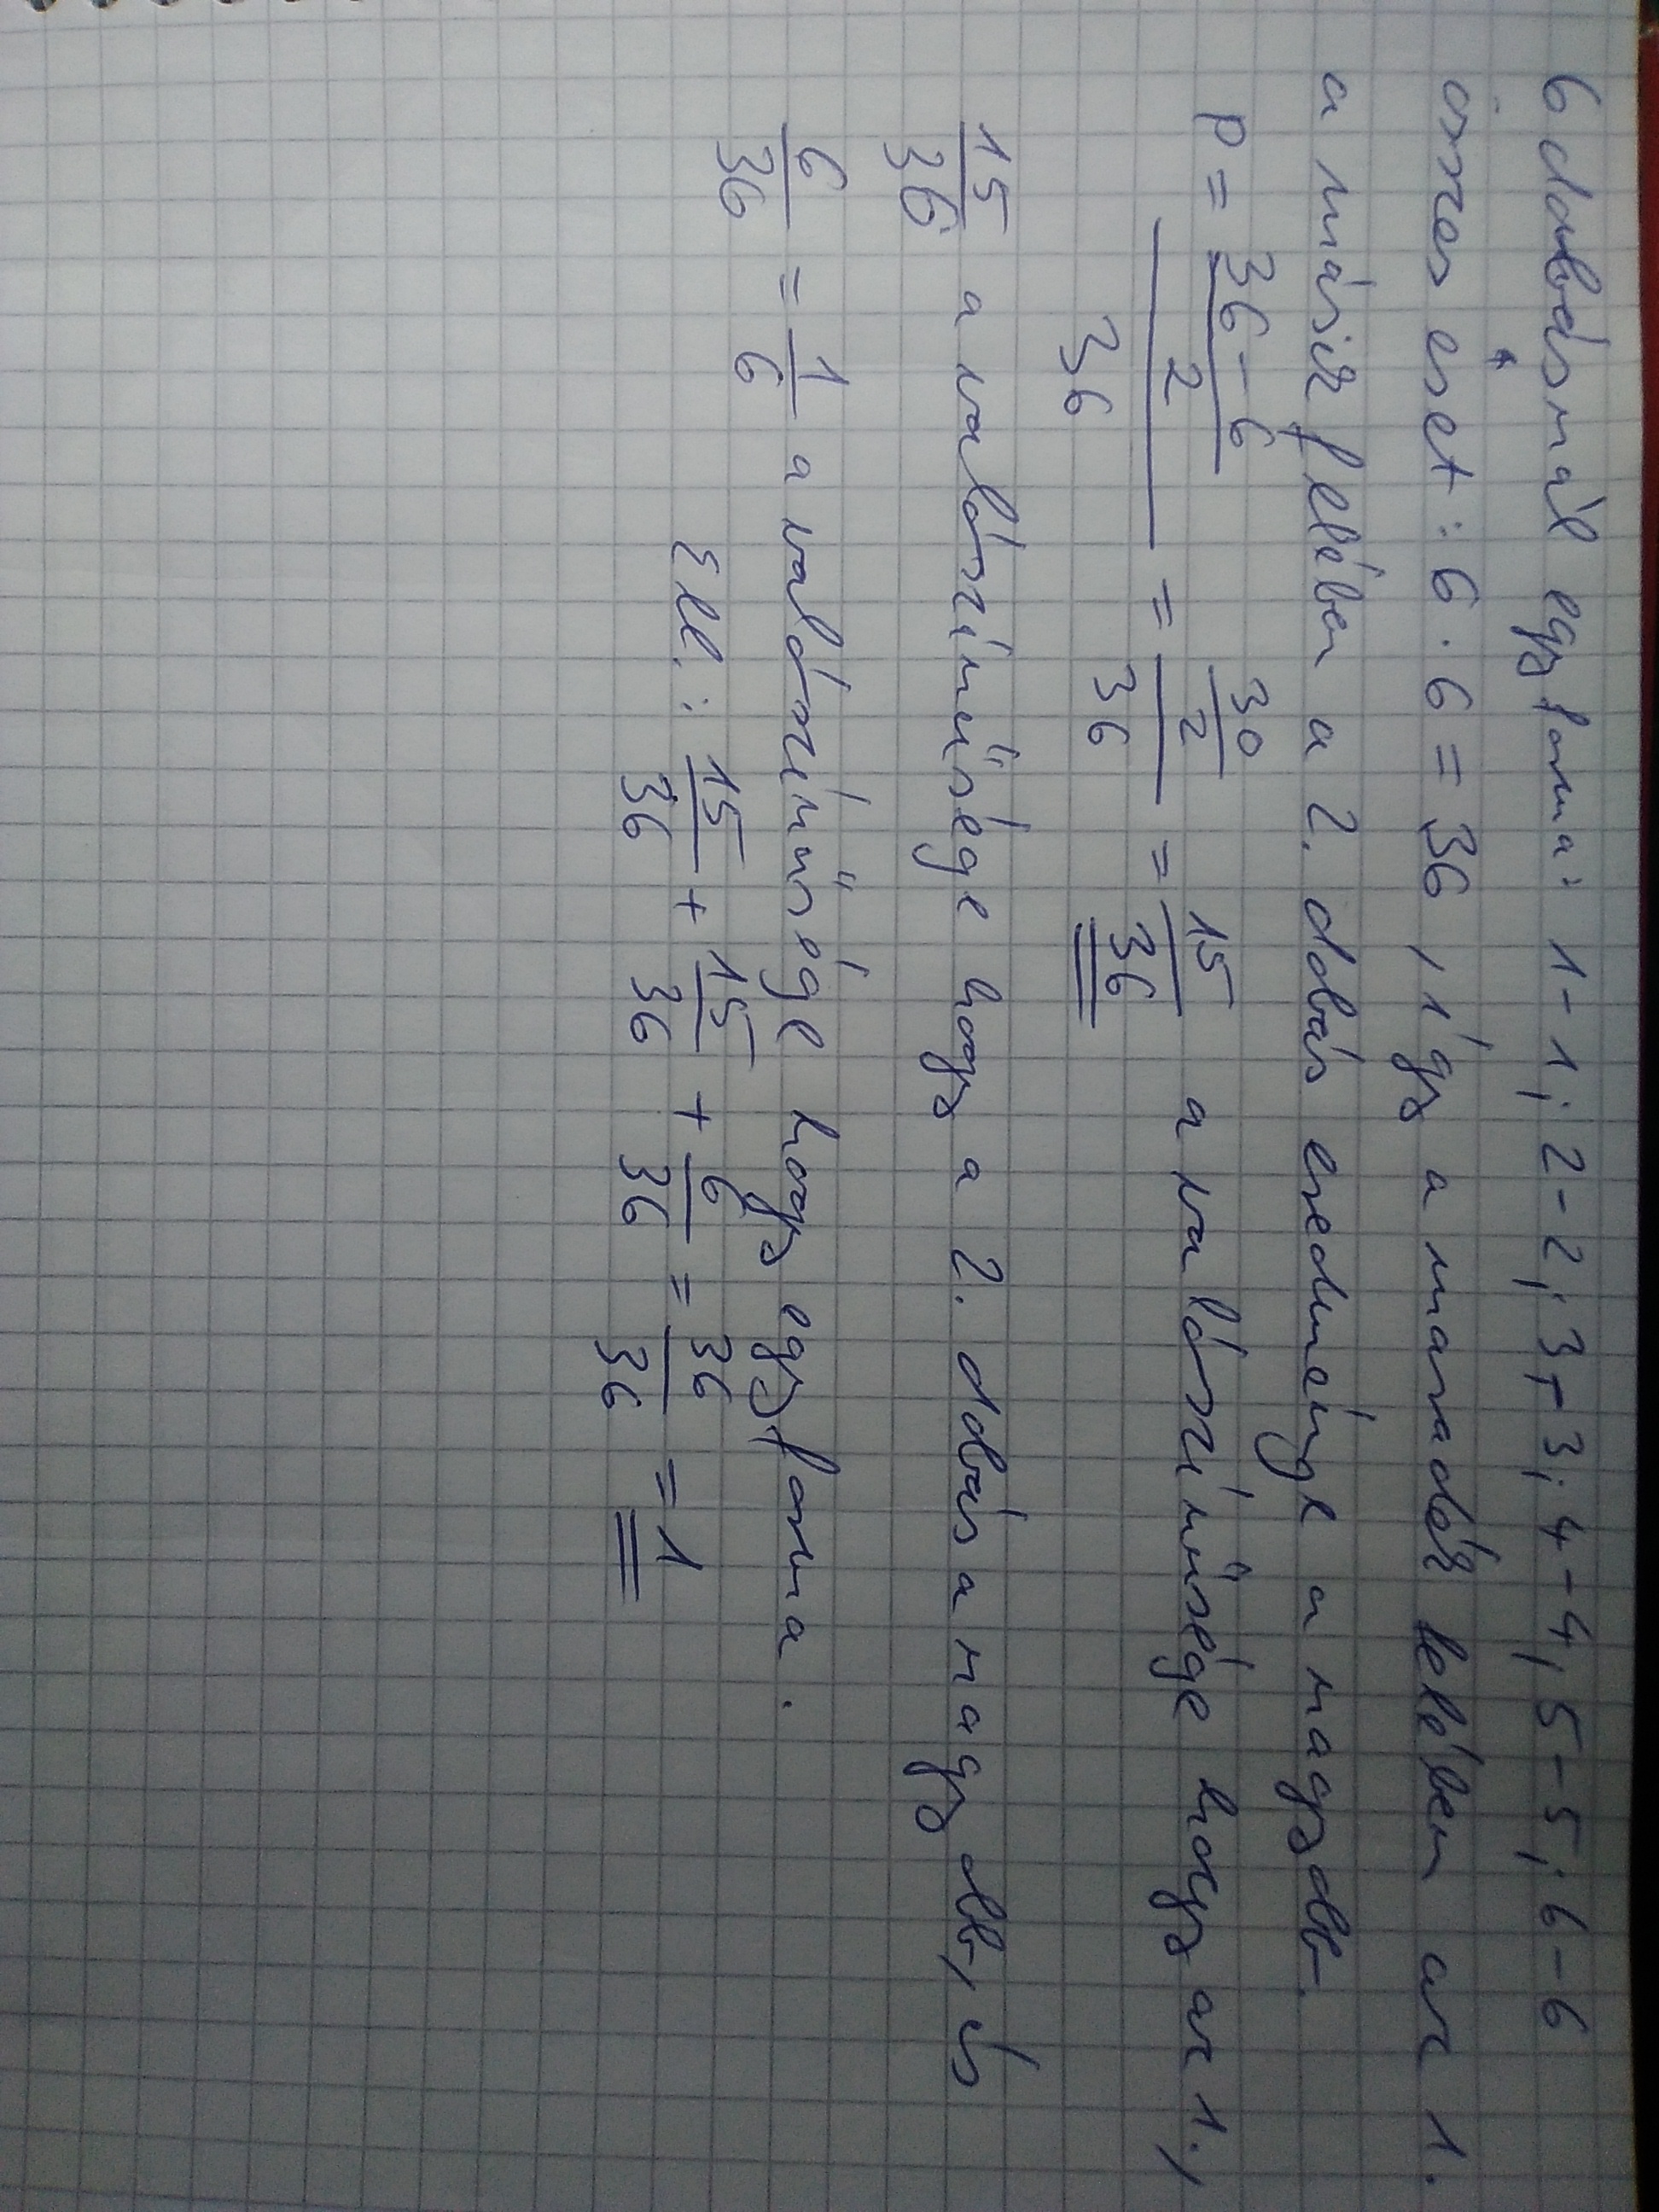 6 dobásnál egyforma: 1-1; 2-2; 3-3; 4-4, 5-5; 6-6
összes eset: 6·6=36, így a maradék felében az 1.
a másik felében a 2. dobás eredménye a nagyobb.
p = ((36-6)/2)/36 = (30/2)/36 = 15/36 a valószínűsége hogy az 1.,
15/36 a valószínűsége hogy a 2. dobás a nagyobb, és
6/36 = 1/6 a valószínűsége hogy egyforma.
Ell.: 15/36 + 15/36 + 6/36 = 36/36 = 1